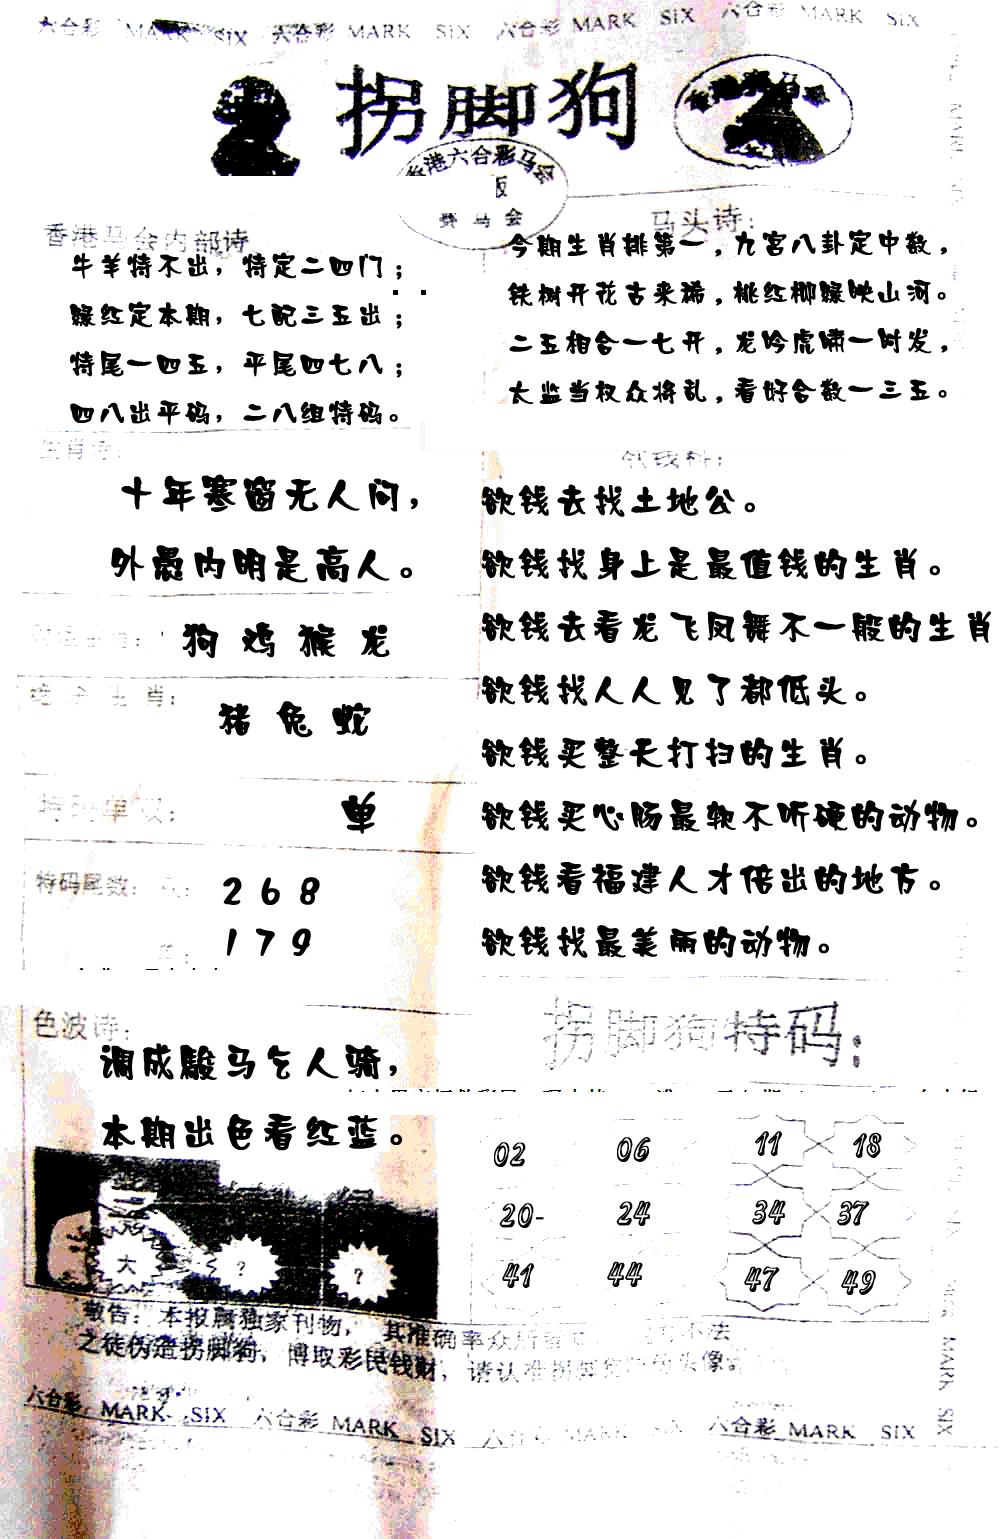 六合彩 MARK SIX 六合彩 MARK SIX 六合彩 MARK SIX 六合彩 MARK SIX
拐脚狗
香港六合彩马会
版
赛马会
香港马会内部诗
牛羊特不出，特定二四门；
绿红定本期，七配三五出；
特尾一四五，平尾四七八；
四八出平码，二八组特码。
马头诗：
今期生肖排第一，九宫八卦定中数，
铁树开花古来稀，桃红柳绿映山河。
二五相合一七开，龙吟虎啸一时发，
太监当权众将乱，看好合数一三五。
生肖诗：
十年寒窗无人问，
外愚内明是高人。
狗 鸡 猴 龙
生肖：
猪 兔 蛇
特码单双：
单
特码尾数：
2 6 8
1 7 9
欲钱料：
欲钱去找土地公。
欲钱找身上是最值钱的生肖。
欲钱去看龙飞凤舞不一般的生肖
欲钱找人人见了都低头。
欲钱买整天打扫的生肖。
欲钱买心肠最软不听硬的动物。
欲钱看福建人才倍出的地方。
欲钱找最美丽的动物。
色波诗：
调成骏马乞人骑，
本期出色看红蓝。
大 ? ?
拐脚狗特码：
02 06 11 18
20- 24 34 37
41 44 47 49
敬告：本报属独家刊物，其准确率众所 不法
之徒伪造拐脚狗，博取彩民钱财，请认准拐脚狗 头像
六合彩 MARK SIX 六合彩 MARK SIX 六合彩 MARK SIX 六合彩 MARK SIX
MARK SIX